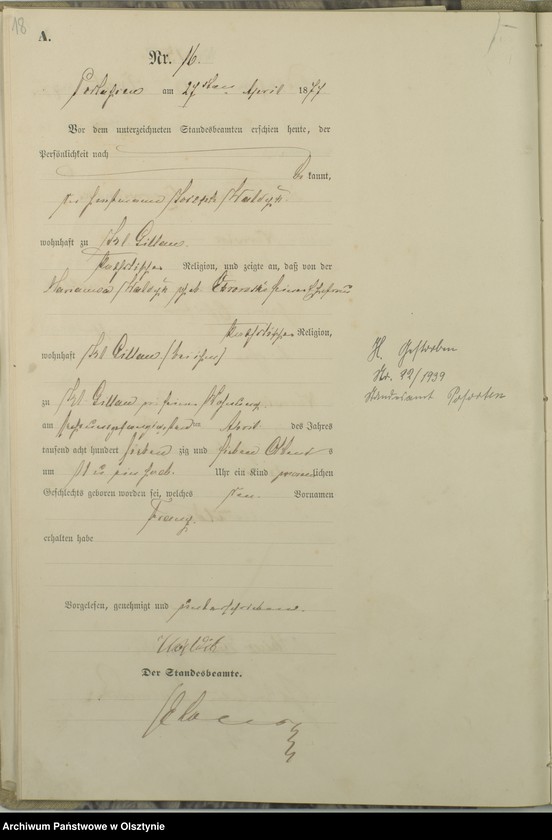 18
A.
Nr. 16.
am 27ten April 1877
Vor dem unterzeichneten Standesbeamten erschien heute, der
Persönlichkeit nach
be kannt,
Joseph
wohnhaft zu Kl Gillau
katholischer Religion, und zeigte an, daß von der
Marianna geb. seiner Ehefrau
katholischer Religion,
wohnhaft Kl Gillau bei ihm
zu Kl. Gillau in seiner Wohnung
am sechsundzwanzigsten April des Jahres
tausend acht hundert sieben zig und sieben Abends
um Uhr ein Kind männlichen
Geschlechts geboren worden sei, welches den Vornamen
Franz
erhalten habe
Vorgelesen, genehmigt und unterschrieben.
Der Standesbeamte.
H. Gestorben
Nr. 22/1939
Standesamt
Archiwum Państwowe w Olsztynie